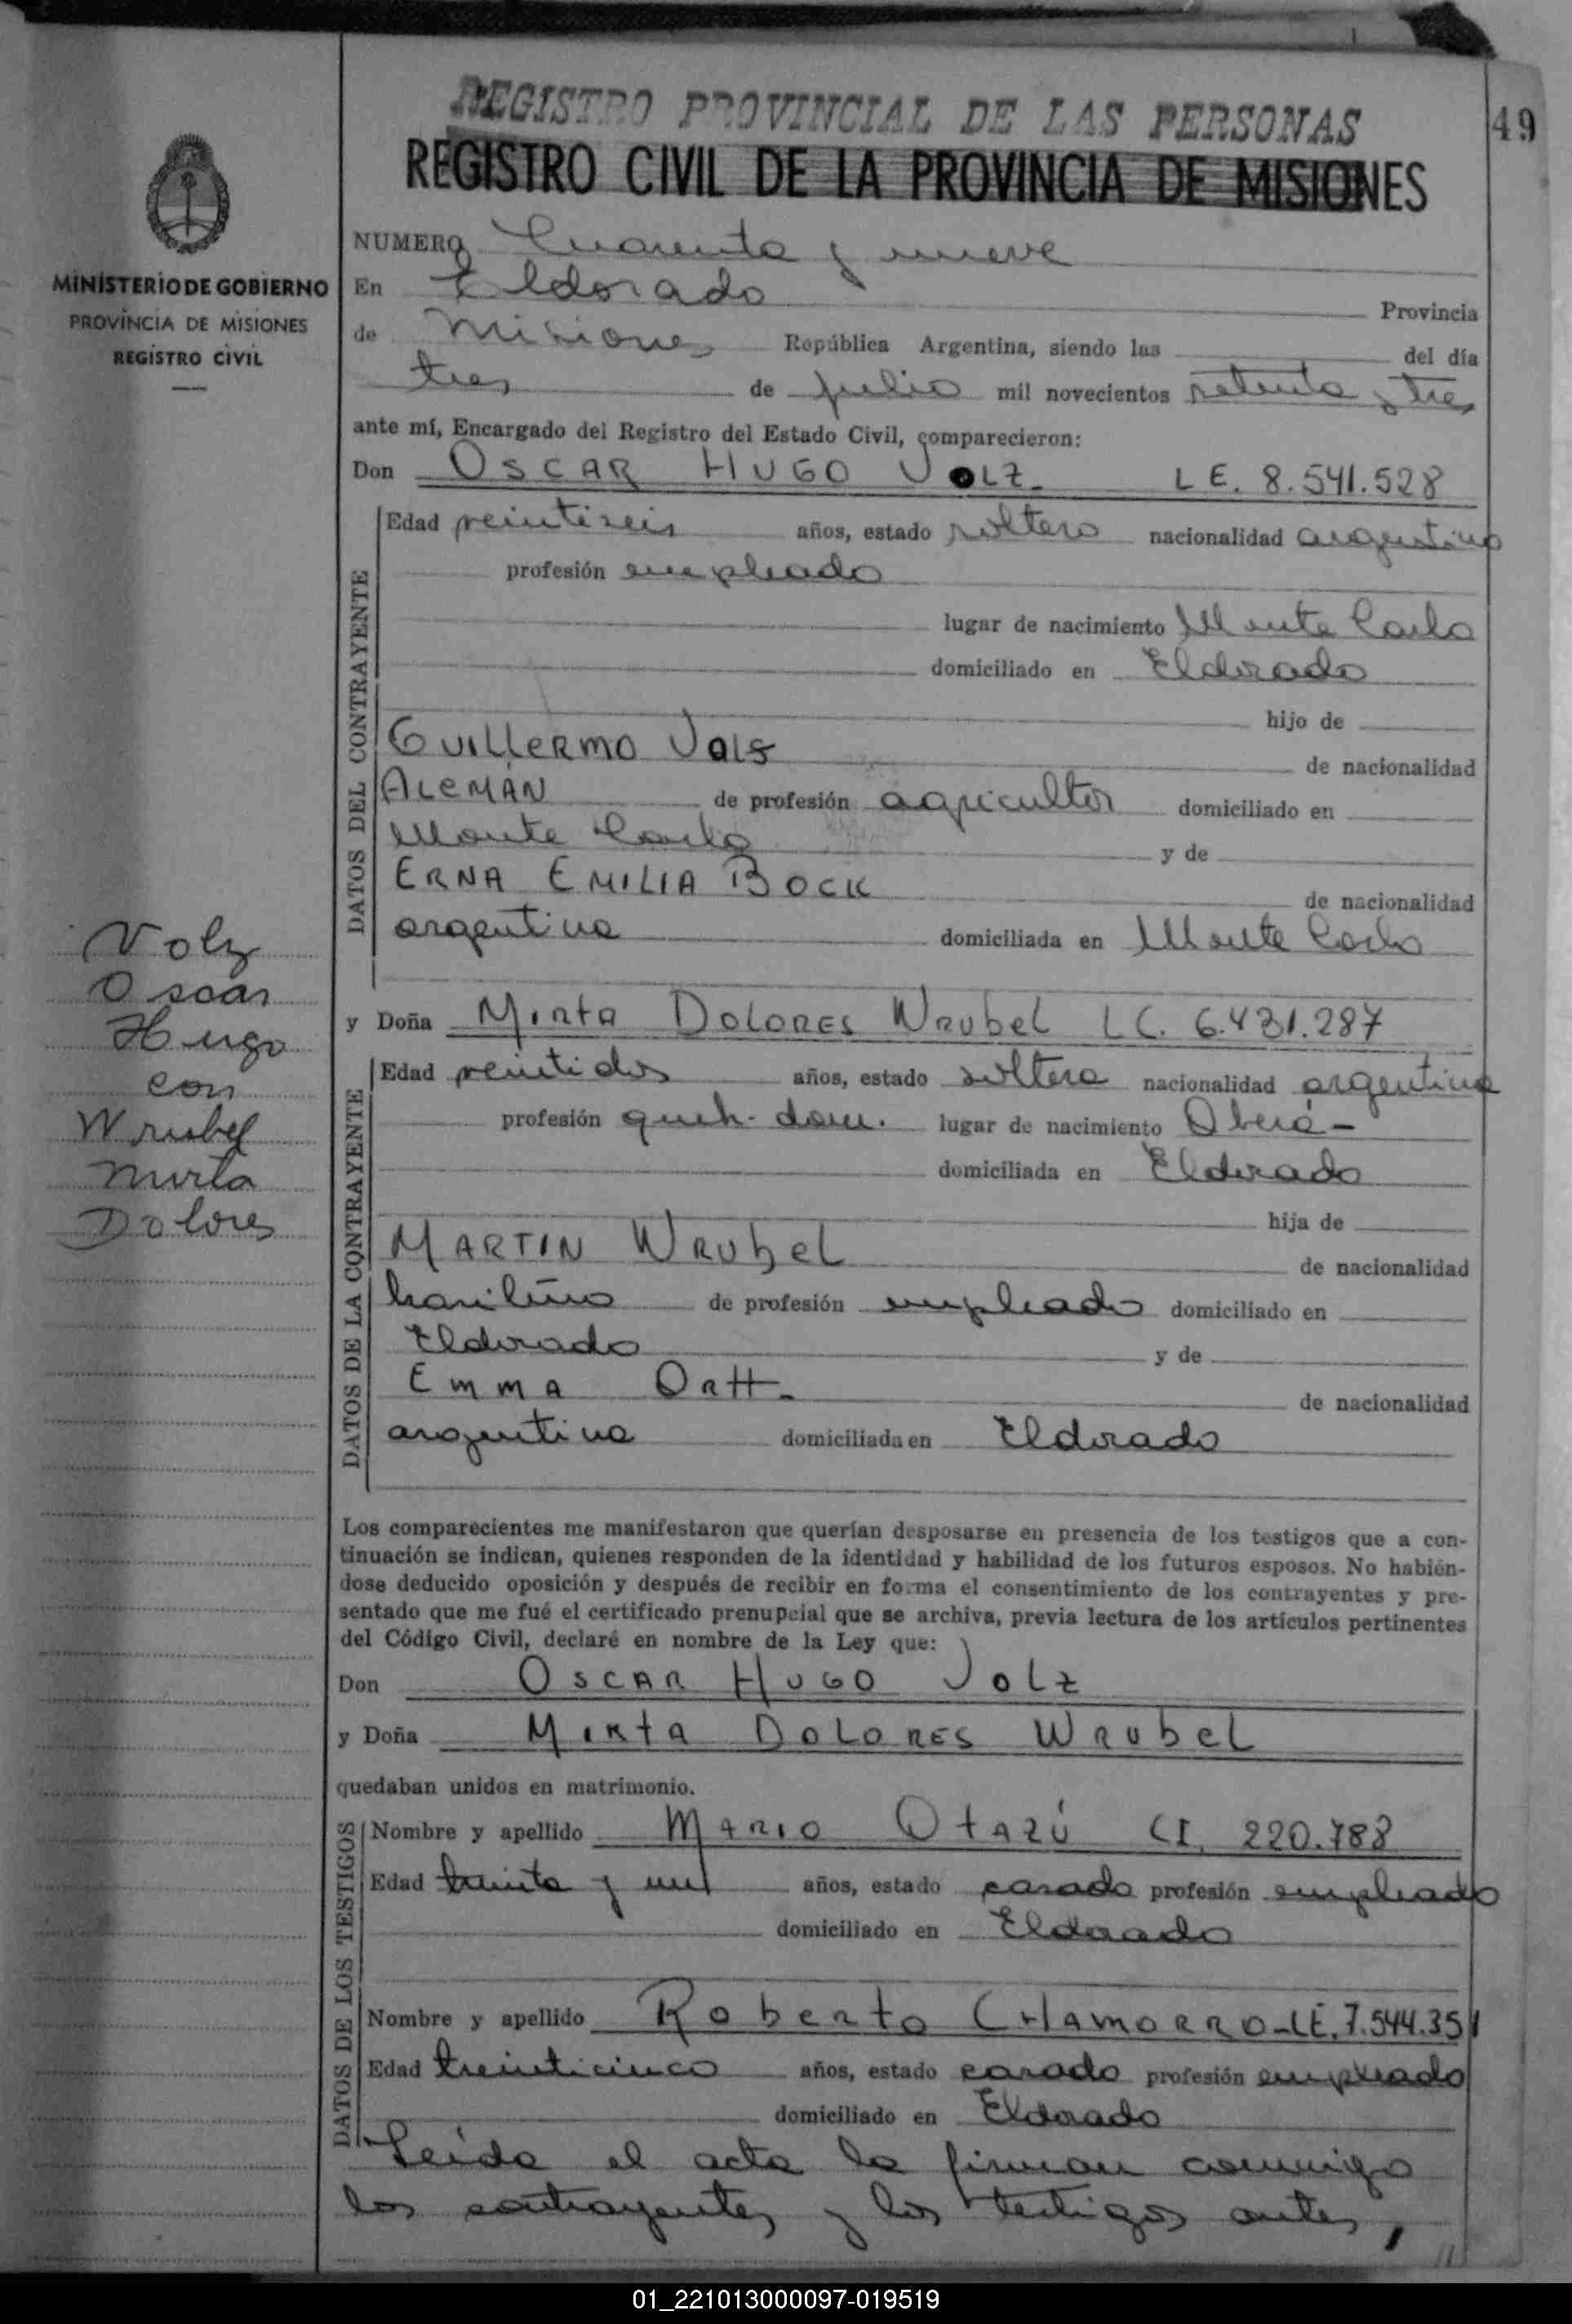 REGISTRO PROVINCIAL DE LAS PERSONAS
49
REGISTRO CIVIL DE LA PROVINCIA DE MISIONES
MINISTERIO DE GOBIERNO
PROVINCIA DE MISIONES
REGISTRO CIVIL
NUMERO Cuarenta y nueve
En Eldorado Provincia
de Misiones República Argentina, siendo las del día
tres de julio mil novecientos setenta y tres
ante mí, Encargado del Registro del Estado Civil, comparecieron:
Don OSCAR HUGO VOLZ- LE. 8.541.528
DATOS DEL CONTRAYENTE
Edad veintiseis años, estado soltero nacionalidad argentino
profesión empleado
lugar de nacimiento Monte Carlo
domiciliado en Eldorado
hijo de
GUILLERMO VOLZ
de nacionalidad
ALEMÁN de profesión agricultor domiciliado en
Monte Carlo y de
ERNA EMILIA BOCK
de nacionalidad
argentina domiciliada en Monte Carlo
Volz
Oscar
Hugo
con
Wrubel
Mirta
Dolores
y Doña MIRTA DOLORES WRUBEL LC. 6.431.287
DATOS DE LA CONTRAYENTE
Edad veintidos años, estado soltera nacionalidad argentina
profesión queh. dom. lugar de nacimiento Oberá-
domiciliada en Eldorado
hija de
MARTIN WRUBEL
de nacionalidad
brasileño de profesión empleado domiciliado en
Eldorado y de
EMMA ORTT-
de nacionalidad
argentina domiciliada en Eldorado
Los comparecientes me manifestaron que querían desposarse en presencia de los testigos que a con-
tinuación se indican, quienes responden de la identidad y habilidad de los futuros esposos. No habién-
dose deducido oposición y después de recibir en forma el consentimiento de los contrayentes y pre-
sentado que me fué el certificado prenupcial que se archiva, previa lectura de los artículos pertinentes
del Código Civil, declaré en nombre de la Ley que:
Don OSCAR HUGO VOLZ
y Doña MIRTA DOLORES WRUBEL
quedaban unidos en matrimonio.
DATOS DE LOS TESTIGOS
Nombre y apellido MARIO OTAZÚ CI. 220.788
Edad treinta y un años, estado casado profesión empleado
domiciliado en Eldorado
Nombre y apellido Roberto CHAMORRO-LE.7.544.351
Edad treinticinco años, estado casado profesión empleado
domiciliado en Eldorado
Leída el acta la firman conmigo
los contrayentes y los testigos antes,
01_221013000097-019519